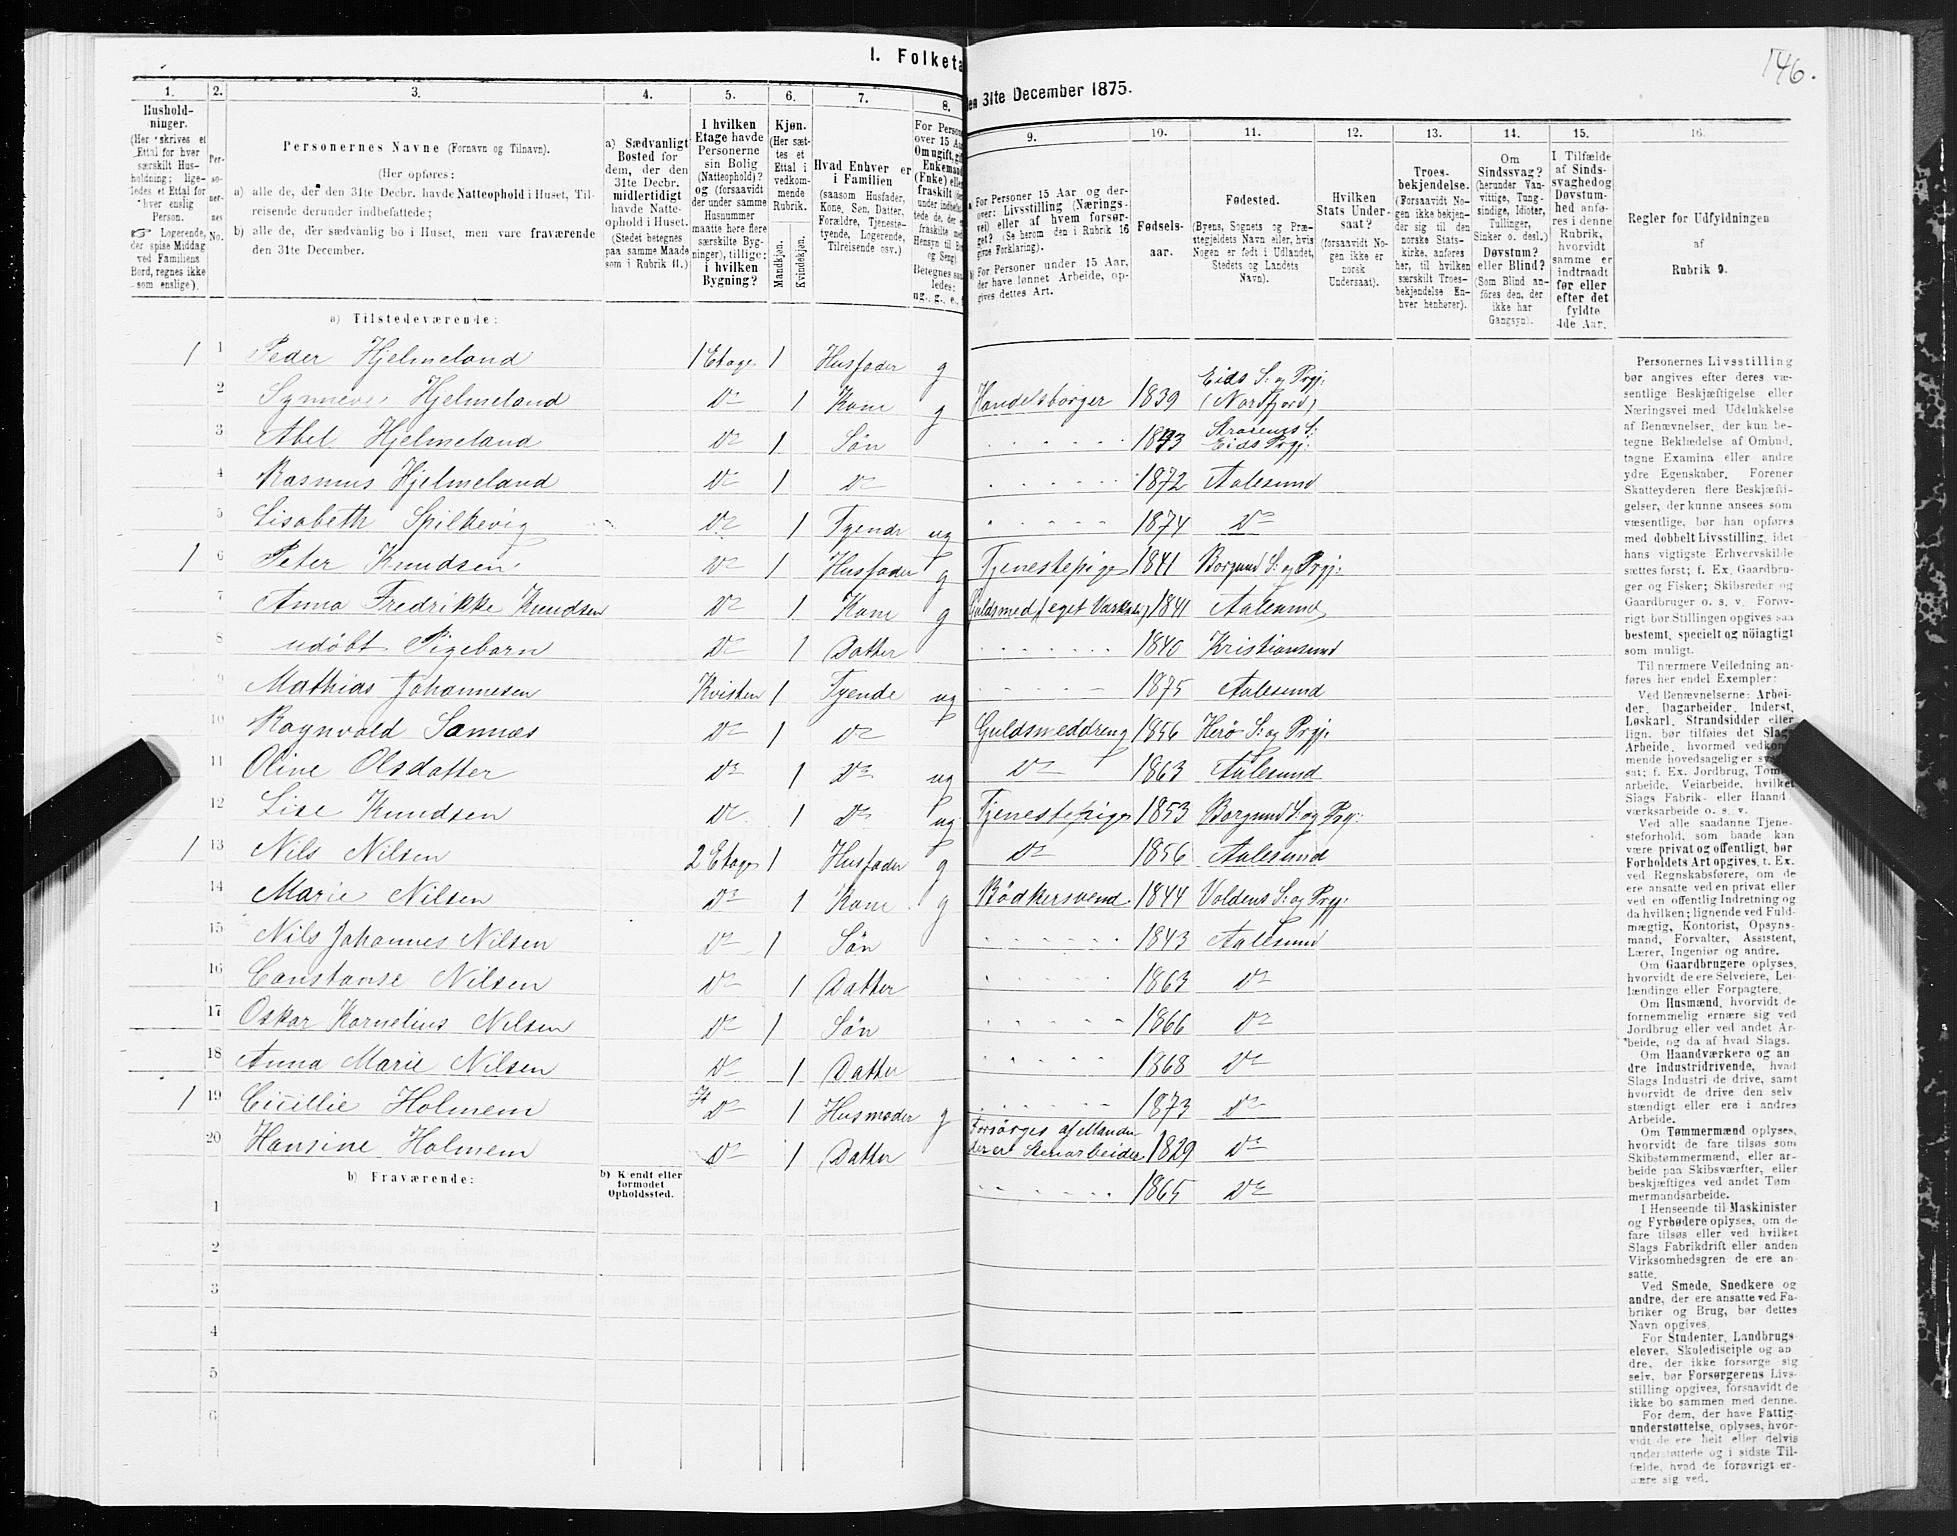 I. Folketa
en 31te December 1875.
146.
1.
Hushold-
ninger.
(Her skrives et
Ettal for hver
særskilt Hus-
holdning; lige-
ledes et Ettal for
hver enslig
Person.
☞ Logerende,
der spise Middag
ved Familiens
Bord, regnes ikke
som enslige).
2.
Per-
so-
ner-
nes
No.
3.
Personernes Navne (Fornavn og Tilnavn).
(Her opføres:
a) alle de, der den 31te Decbr. havde Natteophold i Huset, Til-
reisende derunder indbefattede;
b) alle de, der sædvanlig bo i Huset, men vare fraværende
den 31te December.
4.
a) Sædvanligt
Bosted for
dem, der den
31te Decbr.
midlertidigt
havde Natte-
ophold i Huset.
(Stedet betegnes
paa samme Maade
som i Rubrik 11.)
5.
I hvilken
Etage havde
Personerne
sin Bolig
(Natteophold)?
og (forsaavidt
der under samme
Husnummer
maatte høre flere
særskilte Byg-
ninger), tillige:
i hvilken
Bygning?
6.
Kjøn.
(Her sæt-
tes et
Ettal i
vedkom-
mende
Rubrik.
Mandkjøn.
Kvindekjøn.
7.
Hvad Enhver er
i Familien
(saasom Husfader,
Kone, Søn, Datter,
Forældre, Tjeneste-
tyende, Logerende,
Tilreisende osv.)
8.
For Person
over 15 Aa
Om ugift, gif
Enkemand
(Enke) elle
fraskilt
9.
a. For Personer 15 Aar og der-
over: Livsstilling (Nærings-
vei) eller af hvem forsør-
get? (Se herom den i Rubrik 16
givne Forklaring).
b. For Personer under 15 Aar,
der have lønnet Arbeide, op-
gives dettes Art.
10.
Fødsels-
aar.
11.
Fødested.
(Byens, Sognets og Præ-
stegjeldets Navn eller, hvis
Nogen er født i Udlandet,
Stedets og Landets
Navn).
12.
Hvilken
Stats Under-
saat?
(forsaavidt No-
gen ikke er
norsk
Undersaat).
13.
Troes-
bekjendelse.
(Forsaavidt No-
gen ikke bekjen-
der sig til den
norske Stats-
kirke, anføres
her, til hvilken
særskilt Troes-
bekjendelse En-
hver henhører).
14.
Om
Sindssvag?
(herunder Van-
vittige, Tung-
sindige, Idioter,
Tullinger,
Sinker o. desl.)
Døvstum?
eller Blind?
(Som Blind an-
føres den, der
ikke har
Gangsyn).
15.
I Tilfælde
af Sinds-
svaghed og
Døvstum-
hed anfø-
res i denne
Rubrik,
hvorvidt
samme er
indtraadt
før eller
efter det
fyldte
4de Aar.
16.
Regler for Udfyldningen
af
Rubrik 9.
a) Tilstedeværende:
1 1 Peder Hjelmeland 1 Etage 1 Husfader g
2 Synneve Hjelmeland Do 1 Kone g Handelsborger 1839 Eids S: og Prgj: (Nordfjord)
3 Abel Hjelmeland Do 1 Søn 1843 Eids Prgj:
4 Rasmus Hjelmeland Do 1 Do 1872 Aalesund
5 Lisabeth Spilkevig Do 1 Tyende ug 1874 Do
1 6 Peter Knudsen Do 1 Husfader g Tjenestepige 1841 Borgund S: og Prgj:
7 Anna Fredrikke Knudsen Do 1 Kone g Guldsmed (eget Værksted) 1841 Aalesund
8 udøbt Pigebarn Do 1 Datter 1840 Kristiansund
9 Mathias Johannesen Kvisten 1 Tyende ug 1875 Aalesund
10 Ragnvald Sannæs Do 1 Do Guldsmeddreng 1856 Herø S: og Prgj:
11 Oline Olsdatter Do 1 Do ug Do 1863 Aalesund
12 Lise Knudsen Do 1 Do ug Tjenestepige 1853 Borgund S: og Prgj:
1 13 Nils Nilsen 2 Etage 1 Husfader g Do 1856 Aalesund
14 Marie Nilsen Do 1 Kone g Bødkersvend 1844 Voldens S: og Prgj:
15 Nils Johannes Nilsen Do 1 Søn 1843 Aalesund
16 Constanse Nilsen Do 1 Datter 1863 Do
17 Oskar Kornelius Nilsen Do 1 Søn 1866 Do
18 Anna Marie Nilsen Do 1 Datter 1868 Do
1 19 Cicillie Holmem Do 1 Husmoder g 1873 Do
20 Hansine Holmem Do 1 Datter Forsørges af Manden der er Stenarbeider 1829 Do
1865 Do
b) Fraværende:
b) Kjendt eller
formodet
Opholdssted.
1
2
3
4
5
6
Personernes Livsstilling
bør angives efter deres væ-
sentlige Beskjæftigelse eller
Næringsvei med Udelukkelse
af Benævnelser, der kun be-
tegne Beklædelse af Ombud,
tagne Examina eller andre
ydre Egenskaber. Forener
Skatteyderen flere Beskjæfti-
gelser, der kunne ansees som
væsentlige, bør han opføres
med dobbelt Livsstilling, idet
hans vigtigste Erhvervskilde
sættes først; f. Ex. Gaardbru-
ger og Fisker; Skibsreder og
Gaardbruger o. s. v. Forøv-
rigt bør Stillingen opgives saa
bestemt, specielt og nöiagtigt
som muligt.
Til nærmere Veiledning an-
føres her endel Exempler:
Ved Benævnelserne: Arbei-
der, Dagarbeider, Inderst,
Løskarl, Strandsidder eller
lign. bør tilføies det Slags
Arbeide, hvormed vedkom-
mende hovedsagelig er syssel-
sat; f. Ex. Jordbrug, Tømmer-
arbeide, Veiarbeide, hvilket
Slags Fabrik- eller Haand-
værksarbeide o. s. v.
Ved alle saadanne Tjene-
steforhold, som baade kan
være privat og offentligt, bør
Forholdets Art opgives, t. Ex.
ved Regnskabsførere, om de
ere ansatte ved en privat eller
ved en offentlig Indretning og
da hvilken; lignende ved Fuld-
mægtig, Kontorist, Opsyns-
mand, Forvalter, Assistent,
Lærer, Ingeniør og andre.
Om Gaardbrugere oplyses,
hvorvidt de ere Selveiere, Lei-
lændinge eller Forpagtere.
Om Husmænd, hvorvidt de
fornemmelig ernære sig ved
Jordbrug eller ved andet Ar-
beide, og da af hvad Slags.
Om Haandværkere og an-
dre Industridrivende, hvad
Slags Industri de drive, samt
hvorvidt de drive den selv-
stændigt eller ere i andres
Arbeide.
Om Tømmermænd oplyses,
hvorvidt de fare tilsøs som
Skibstømmermænd, eller ar-
beide paa Skibsværfter, eller
beskjæftiges ved andet Tøm-
mermandsarbeide.
I Henseende til Maskinister
og Fyrbødere oplyses, om de
fare tilsøs eller ved hvilket
Slags Fabrikdrift eller anden
Virksomhedsgren de ere an-
satte.
Ved Smede, Snedkere og
andre, der ere ansatte ved Fa-
briker og Brug, bør dettes
Navn opgives.
For Studenter, Landbrugs-
elever, Skoledisciple og an-
dre, der ikke forsørge sig
selv, bør Forsørgerens Livs-
stilling opgives, forsaavidt de
ikke bo sammen med denne.
For dem, der have Fattig-
understøttelse, oplyses, hvor-
vidt de ere helt eller delvis
understøttede og i sidste Til-
fælde, hvad de forøvrigt er-
nære sig ved.